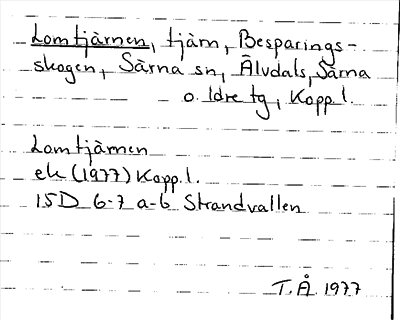 Lomtjärnen, tjärn, Besparings-
skogen, Särna sn, Älvdals, Särna
o. Idre tg, Kopp.l.
Lomtjärnen
ek (1977) Kopp.l.
15D 6-7 a-b Strandvallen
T.Å 1977